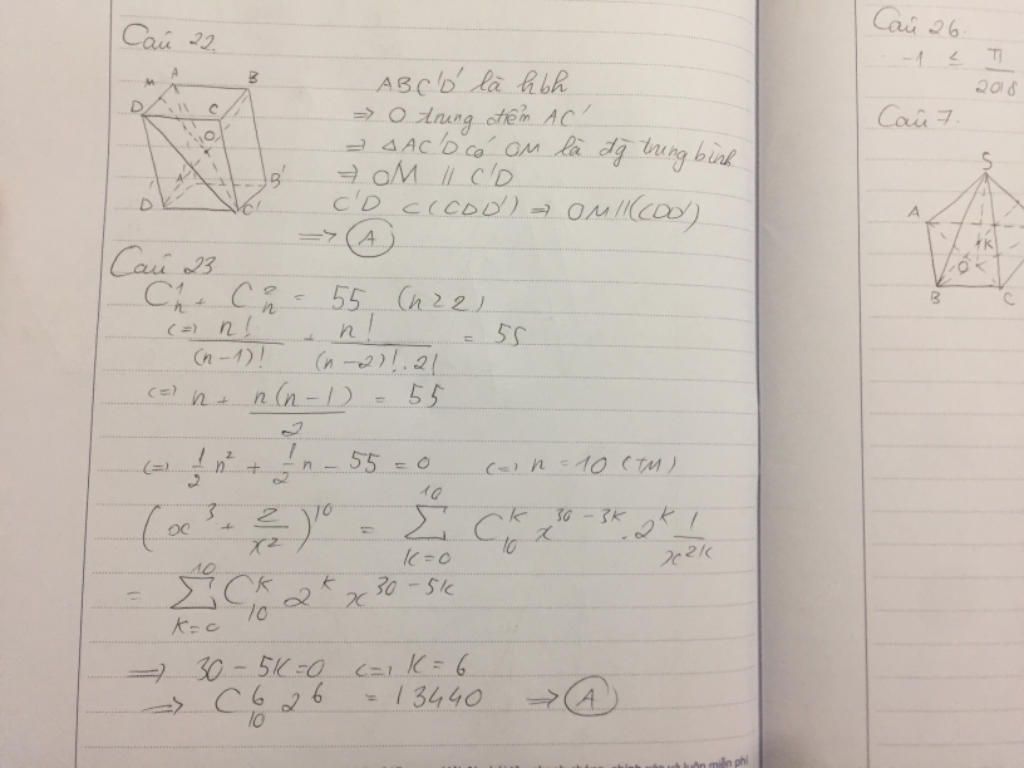 Câu 22.
M A B
D C
O
A B'
D' C'
ABC'D' là hbh
=> O trung điểm AC'
=> ΔAC'D có OM là đg trung bình
=> OM // C'D
C'D ⊂ (CDD') => OM//(CDD')
=> A
Câu 23
C¹ₙ + C²ₙ = 55 (n ≥ 2)
<=> n!/(n-1)! + n!/((n-2)!.2!) = 55
<=> n + n(n-1)/2 = 55
<=> 1/2 n² + 1/2 n - 55 = 0 <=> n = 10 (TM)
(x³ + 2/x²)¹⁰ = Σ_{k=0}^{10} C_{10}^{k} x^{30-3k} . 2^k 1/x^{2k}
= Σ_{k=0}^{10} C_{10}^{k} 2^k x^{30-5k}
=> 30 - 5k = 0 <=> k = 6
=> C_{10}^{6} 2⁶ = 13440 => A
Câu 26.
-1 ≤ π/2018
Câu 7.
S
A
K
O
B C